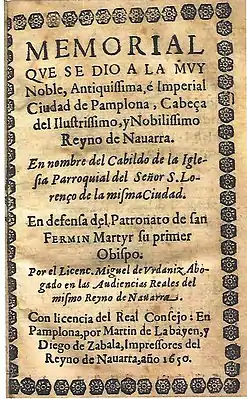 MEMORIAL
QVE SE DIO A LA MVY
Noble, Antiquissima, è Imperial
Ciudad de Pamplona, Cabeça
del Ilustrissimo, y Nobilissimo
Reyno de Nauarra.
En nombre del Cabildo de la Igle-
sia Parroquial del Señor S. Lo-
renço de la misma Ciudad.
En defensa del Patronato de san
FERMIN Martyr su primer
Obispo.
Por el Licenc. Miguel de Vrdaniz Abo-
gado en las Audiencias Reales del
mismo Reyno de Nauarra.
Con licencia del Real Consejo: En
Pamplona, por Martin de Labayen, y
Diego de Zabala, Impressores del
Reyno de Nauarra, año 1650.